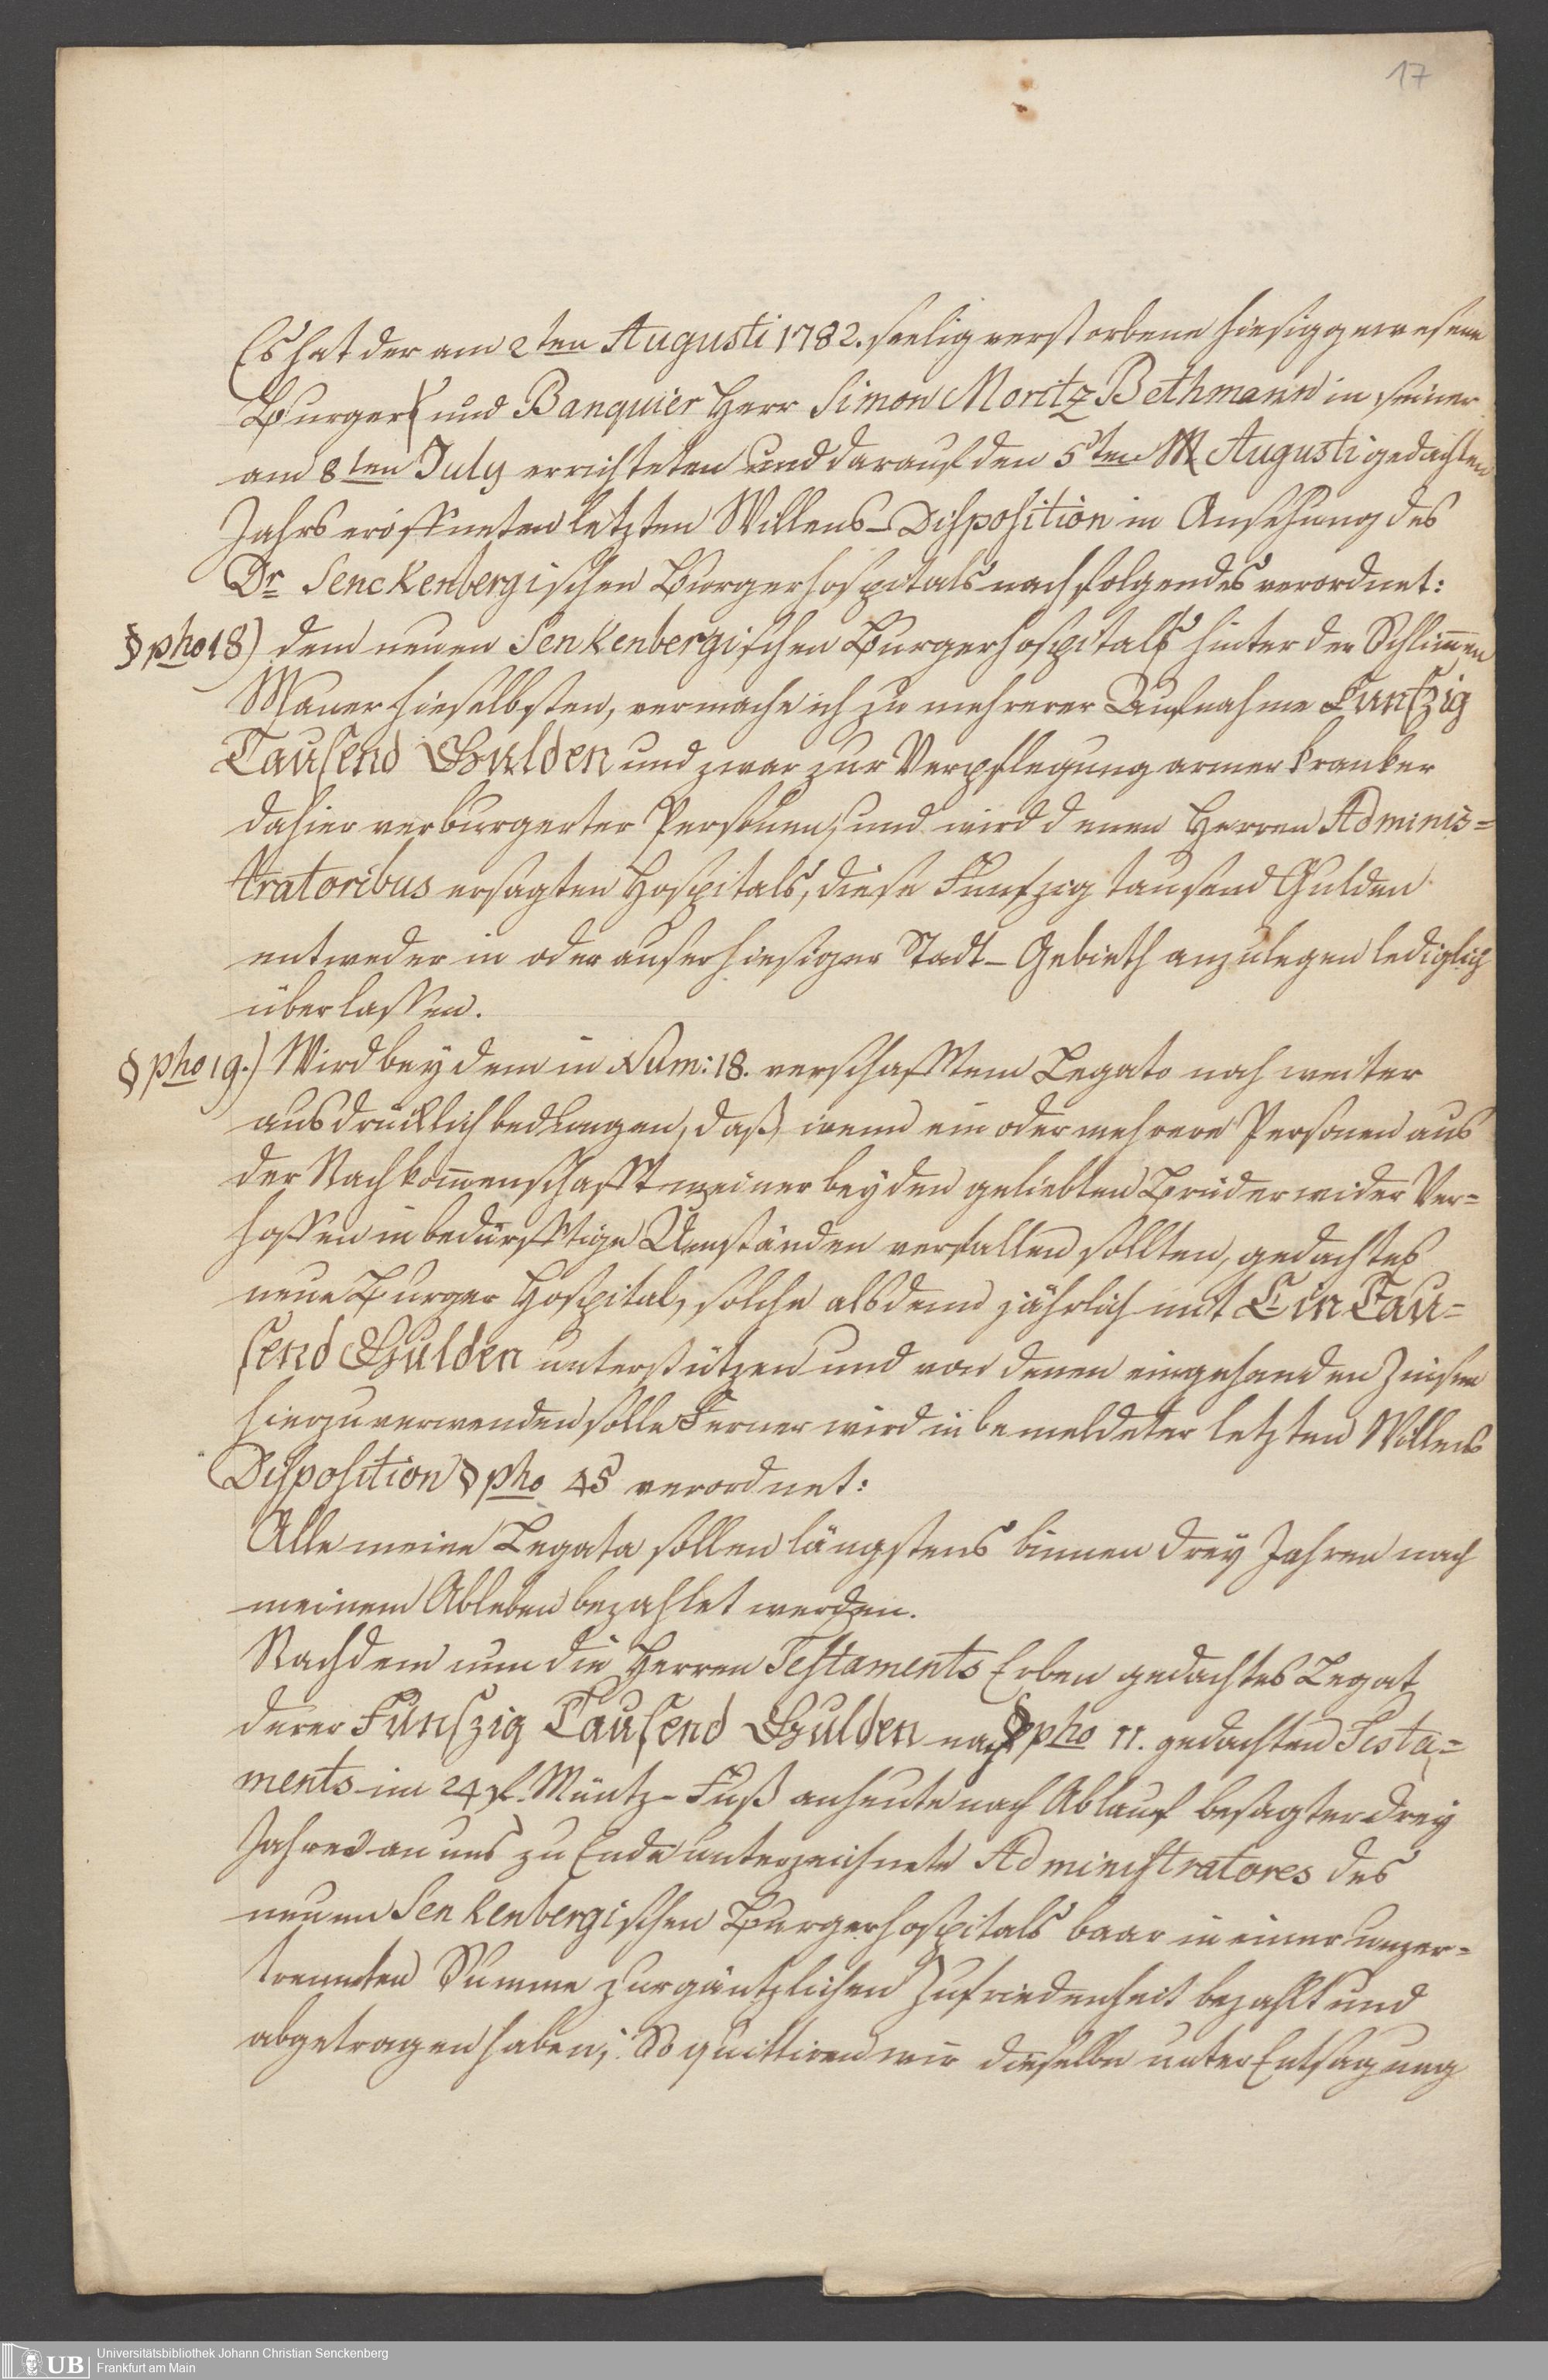 17
Es hat der am 2ten Augusti 1782. seelig verstorbene hiesig gewesene
Burger und Banquier Herr Simon Moritz Bethmann in seiner
am 8ten July errichteten und darauf den 5ten Augusti gedachten
Jahrs eröffneten letzten Willens-Disposition in Ansehung des
Dr Senckenbergischen Burgerhospitals nachfolgendes verordnet:
§pho 18) dem neuen Senkenbergischen Burgerhospitals hinter der Schlim̄en
Mauer hieselbsten, vermache ich zu mehrerer Aufnahme Funfzig
Tausend Gulden und zwar zur Verpflegung armer kranker
dahier verburgerter Personen, und wird denen Herren Adminis=
tratoribus ersagten Hospitals, diese Funfzig tausend Gulden
entweder in oder auser hiesiger Stadt-Gebieth anzulegen lediglich
überlassen.
§pho 19.) Wird bey dem in Num: 18. verschafftem Legato noch weiter
ausdrücklich bedungen, daß, wenn ein oder mehrere Personen aus
der Nachkom̄enschafft meiner beyden geliebten Brüder wider Ver=
hoffen in bedürfftige Umständen verfallen sollten, gedachtes
neue Burger Hospital, solche alsdenn jährlich mit Ein Tau=
send Gulden unterstützen und von denen eingehenden Zinsen
hierzu verwenden solle Ferner wird in bemeldeter letzten Willens
Disposition §pho 45 verordnet:
Alle meine Legata sollen längstens binnen drey Jahren nach
meinem Ableben bezahlet werden.
Nachdem nun die Herren Testaments Erben gedachtes Legat
derer Funfzig Tausend Gulden nach §pho 11. gedachten Testa=
ments im 24 fl. Müntz-Fuß anheute nach Ablauf besagter drey
Jahren an uns zu Ende unterzeichnete Administratores des
neuen Senkenbergischen Burgerhospitals baar in einer unzer=
trennten Summe zur gäntzlichen Zufriedenheit bezahlt und
abgetragen haben; So quittiren wir dieselbe unter Entsagung
UB
Universitätsbibliothek Johann Christian Senckenberg
Frankfurt am Main